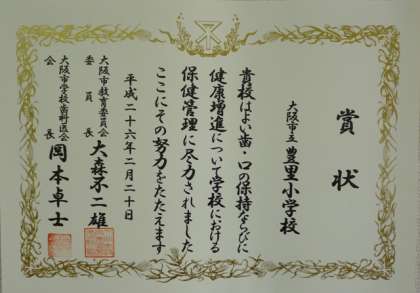 賞状
大阪市立 豊里小学校
貴校はよい歯・口の保持ならびに
健康増進について学校における
保健管理に尽力されました
ここにその努力をたたえます
平成二十六年二月二十日
大阪市教育委員会
委員長 大森不二雄
大阪市学校歯科医会
会長 岡本卓士